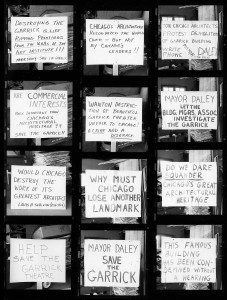 DESTROYING THE
GARRICK IS LIKE
RIPPING PAINTINGS
FROM THE WALLS OF THE
ART INSTITUTE!!
CHICAGO'S ARCHITECTURE
RECOGNIZED THE WORLD
OVER - BUT NOT
BY CHICAGO'S
LEADERS!!
CHICAGO ARCHITECTS
PROTEST DEMOLITION
OF GARRICK BUILDING
COMMERCIAL
INTERESTS
CHICAGO'S
ARCHITECTURAL
HERITAGE??
SAVE THE GARRICK!!
WANTON DESTRUC-
TION OF BEAUTIFUL
GARRICK THEATER
MAYOR DALEY
LET THE
BLDG MGRS. ASSOC
INVESTIGATE
THE GARRICK
WOULD CHICAGO
DESTROY THE
WORK OF ITS
GREATEST ARCHITECT
LOUIS SULLIVAN
WHY MUST
CHICAGO
LOSE ANOTHER
LANDMARK
DO WE DARE
SQUANDER
CHICAGO'S GREAT
ARCHITECTURAL
HERITAGE
HELP
SAVE THE
GARRICK
THEATRE
MAYOR DALEY
SAVE
THE
GARRICK
THIS FAMOUS
BUILDING
HAS BEEN CON-
DEMNED WITHOUT
A HEARING